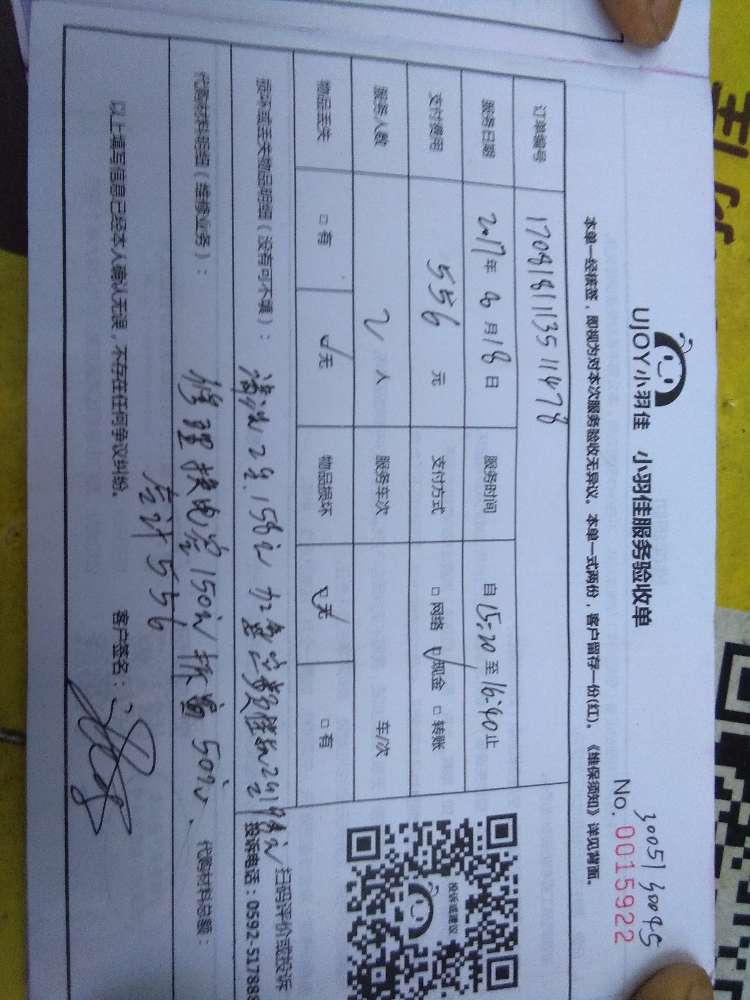 30051 30095
UJOY小羽佳 小羽佳服务验收单 No. 0015922
本单一经核签，即视为对本次服务验收无异议。本单一式两份，客户留存一份(红)。《维保须知》详见背面。
订单编号 170818113511478
服务日期 2017年 8月18日 服务时间 自15:20至16:40止
支付费用 556 元 支付方式 □网络 ☑现金 □转账
服务人数 2 人 服务车次 车/次
物品丢失 □有 ☑无 物品损坏 ☑无 □有
损坏或丢失物品明细（没有可不填）： 清洗2台.158元
扫码评价或投诉
投诉电话：0592-517888
投诉或建议
代购材料明细（维修业务）： 修理换电容150元 50元、 代购材料总额：
合计556
以上填写信息已经本人确认无误，不存在任何争议纠纷。 客户签名：